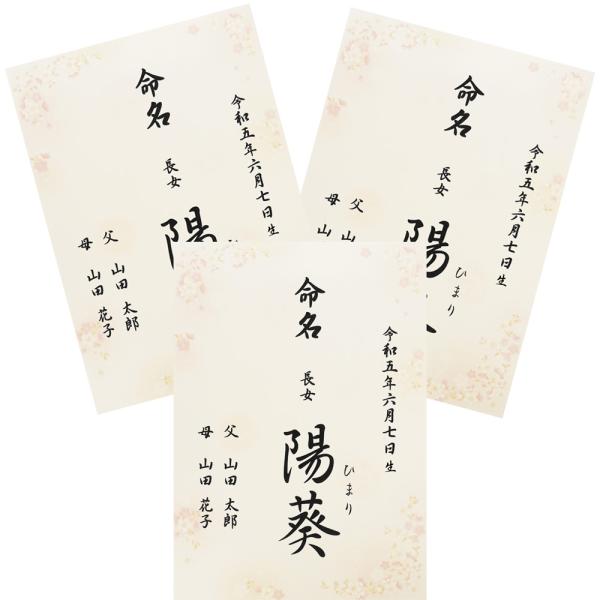 命名
令和五年六月七日生
長女
陽
ひ
父 山田 太郎
母 山田 花子
命名
令和五年六月七日生
長女
陽
ひまり
父 山
母
命名
令和五年六月七日生
長女
陽葵
ひまり
父 山田 太郎
母 山田 花子